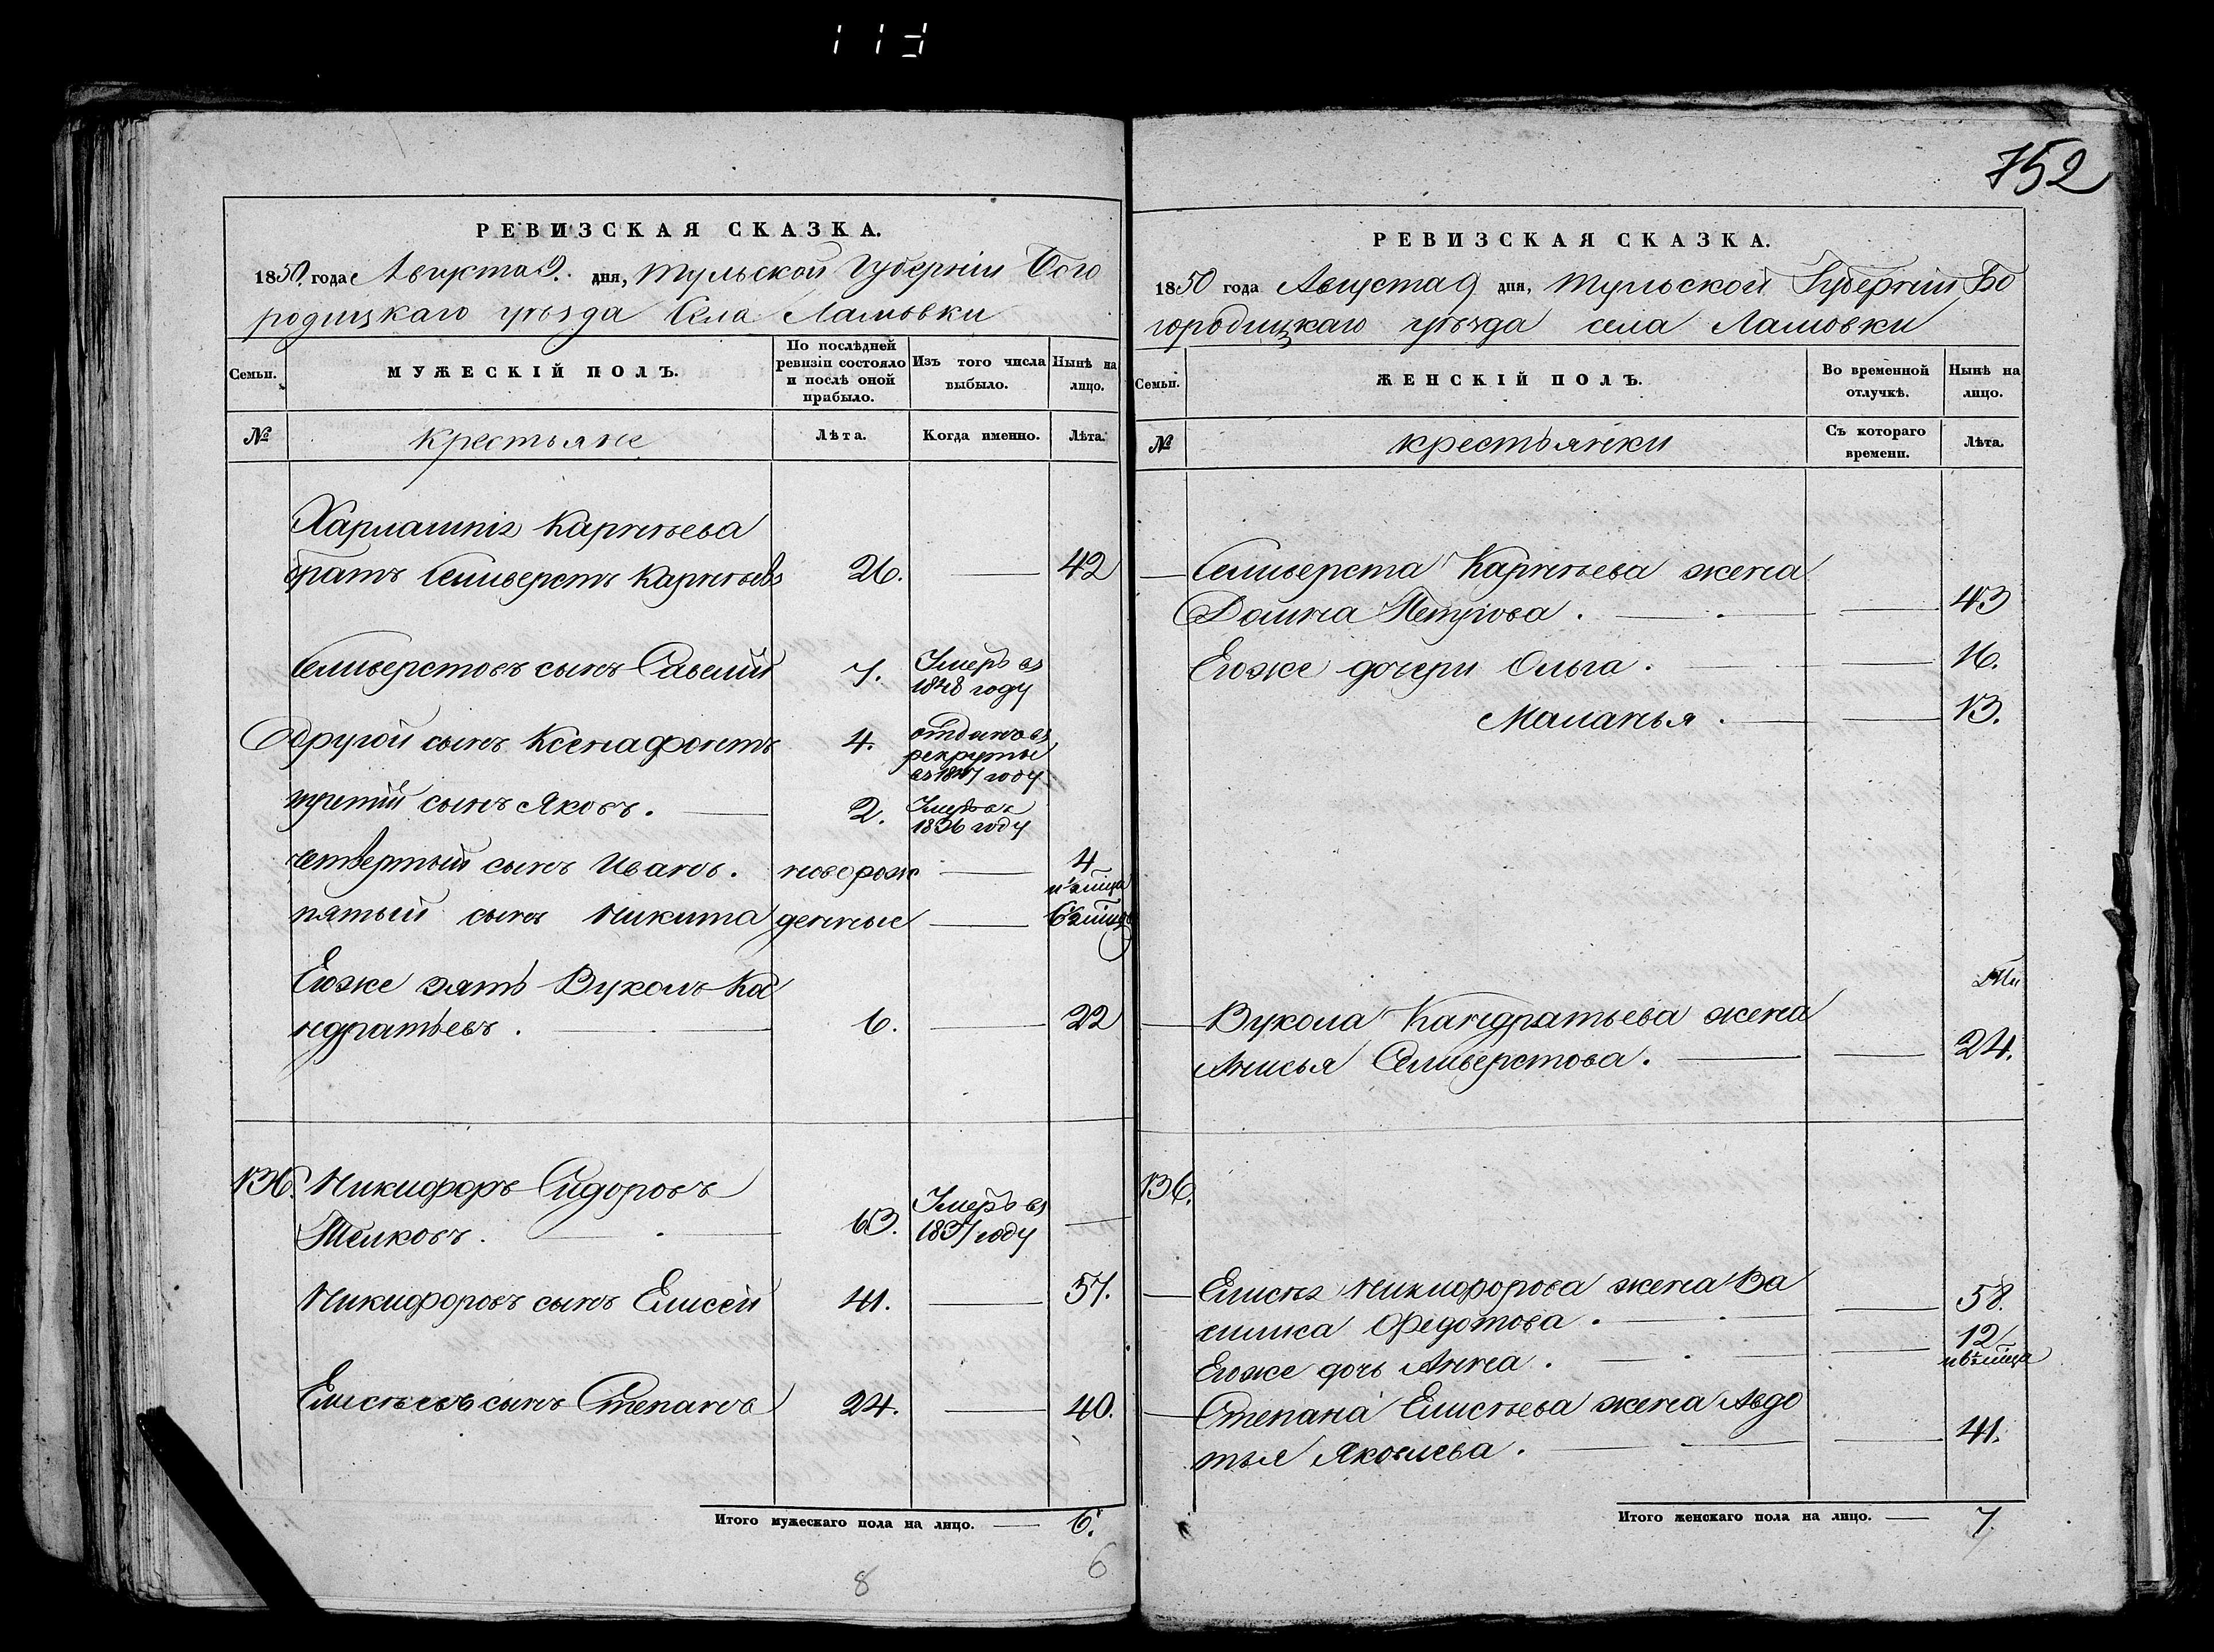 752
РЕВИЗСКАЯ СКАЗКА.
1850. года Августа 9. дня, Тульской Губерніи Бого
родицкаго уѣзда Села Ламовки
Семьи.
МУЖЕСКІЙ ПОЛЪ.
По послѣдней ревизіи состояло и послѣ оной прибыло.
Изъ того числа выбыло.
Нынѣ на лицо.
№
Крестьяне
Лѣта.
Когда именно.
Лѣта.
Харлампія Карнѣева
братъ Селиверстъ Карнѣевъ 26. 42
Селиверстовъ сынъ Савелій 7. Умеръ въ 1848 году
Другой сынъ Ксенафонтъ 4. отданъ въ рекруты въ 1847 году
третій сынъ Яковъ. 2. Умеръ въ 1836 году
четвертый сынъ Иванъ. новорож 4
пятый сынъ Никита денные
Егоже зять Вуколъ Ка
ндратьевъ. 6. 22
136. Никифоръ Сидоровъ
Телковъ. 63. Умеръ въ 1837 году
Никифоровъ сынъ Елисей 41. 57.
Елисѣевъ сынъ Степанъ 24. 40.
Итого мужескаго пола на лицо. 6.
8
6
РЕВИЗСКАЯ СКАЗКА.
1850 года Августа 9 дня, Тульской Губерніи Бо
городицкаго уѣзда села Ламовки
Семьи.
ЖЕНСКІЙ ПОЛЪ.
Во временной отлучкѣ.
Нынѣ на лицо.
№
крестьянки
Съ котораго времени.
Лѣта.
Селиверста Карнѣева жена
Домна Петрова. 43
Егоже дочери Ольга. 16.
Маланья. 13.
Вукола Кандратьева жена
Анисья Селиверстова. 24.
136.
Елисѣя Никифорова жена Ва
силиса Федотова. 58.
Егоже дочь Анна. 12
Степана Елисѣева жена Авдо
тья Яковлева. 41.
Итого женскаго пола на лицо. 7.